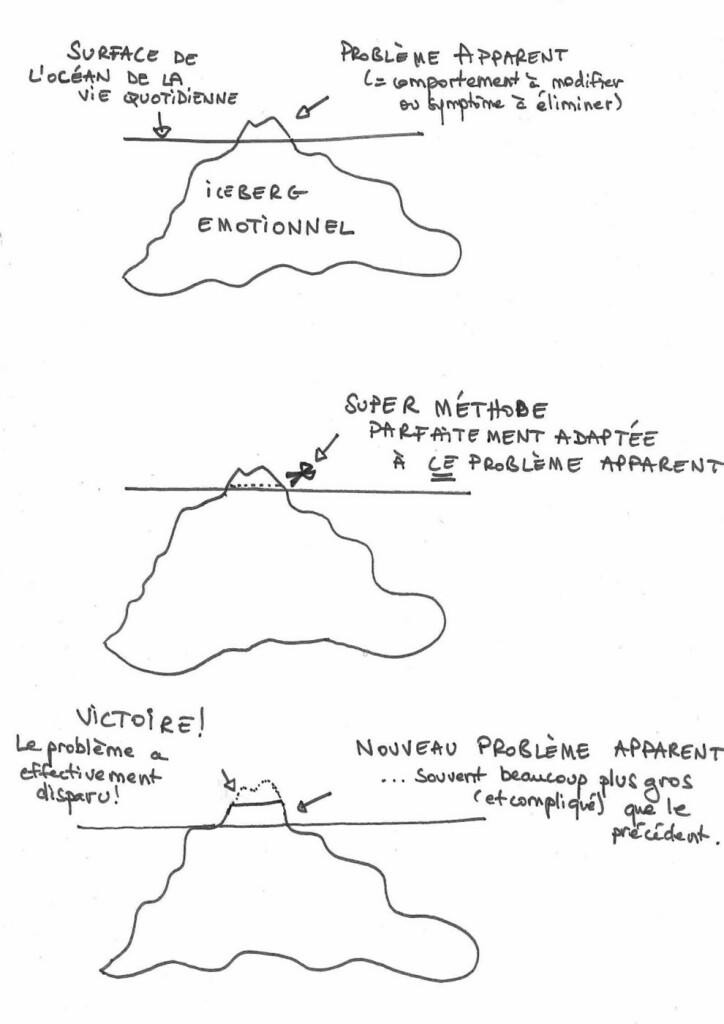 SURFACE DE
L'OCÉAN DE LA
VIE QUOTIDIENNE
PROBLÈME APPARENT
(= comportement à modifier
ou symptôme à éliminer)
ICEBERG
EMOTIONNEL
SUPER MÉTHODE
PARFAITEMENT ADAPTÉE
À CE PROBLÈME APPARENT
VICTOIRE!
Le problème a
effectivement
disparu!
NOUVEAU PROBLÈME APPARENT
... souvent beaucoup plus gros
(et compliqué) que le
précédent.